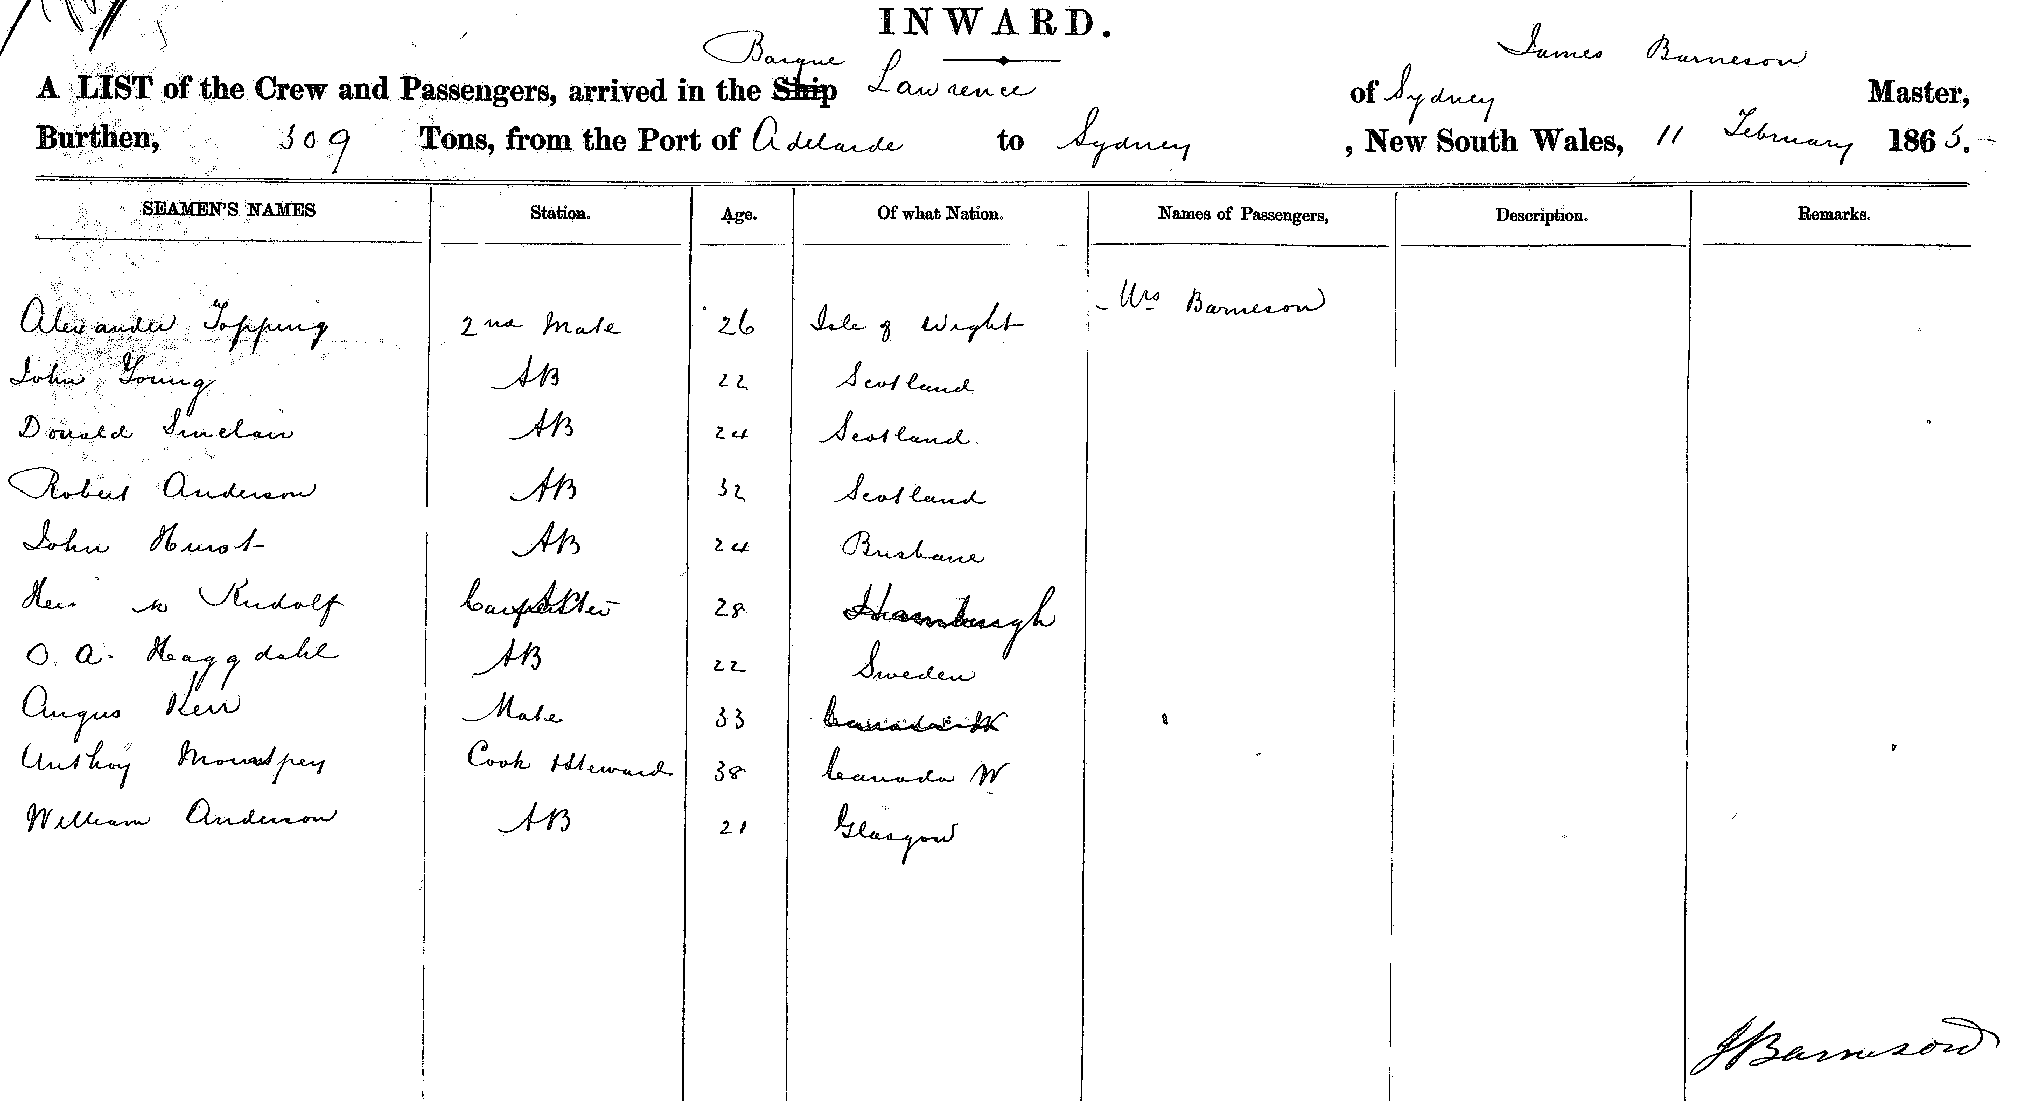 INWARD.
Barque James Barneson
A LIST of the Crew and Passengers, arrived in the Ship Lawrence of Sydney Master,
Burthen, 309 Tons, from the Port of Adelaide to Sydney, New South Wales, 11 February 1865.
SEAMEN'S NAMES Station. Age. Of what Nation. Names of Passengers, Description. Remarks.
Alexander Topping 2nd Mate 26 Isle of Wight Mrs Barneson
John Young AB 22 Scotland
Donald Sinclair AB 24 Scotland
Robert Anderson AB 32 Scotland
John Hurst AB 24 Brisbane
Rudolf Carpenter 28 Hamburgh
O. A. Haggdahl AB 22 Sweden
Angus Kerr Mate 33 Canada W
Anthoy Cook & Steward 38 Canada W
William Anderson AB 21 Glasgow
J Barneson